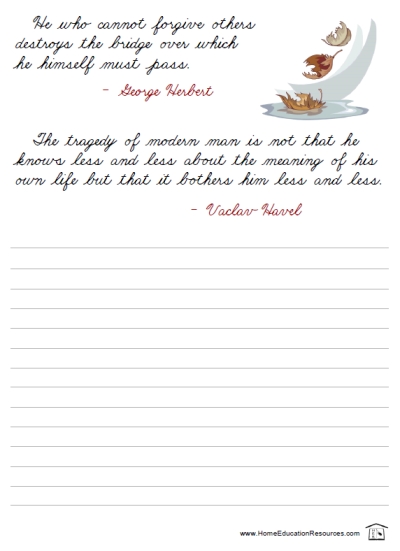 He who cannot forgive others
destroys the bridge over which
he himself must pass.
- George Herbert
The tragedy of modern man is not that he
knows less and less about the meaning of his
own life but that it bothers him less and less.
- Vaclav Havel
www.HomeEducationResources.com